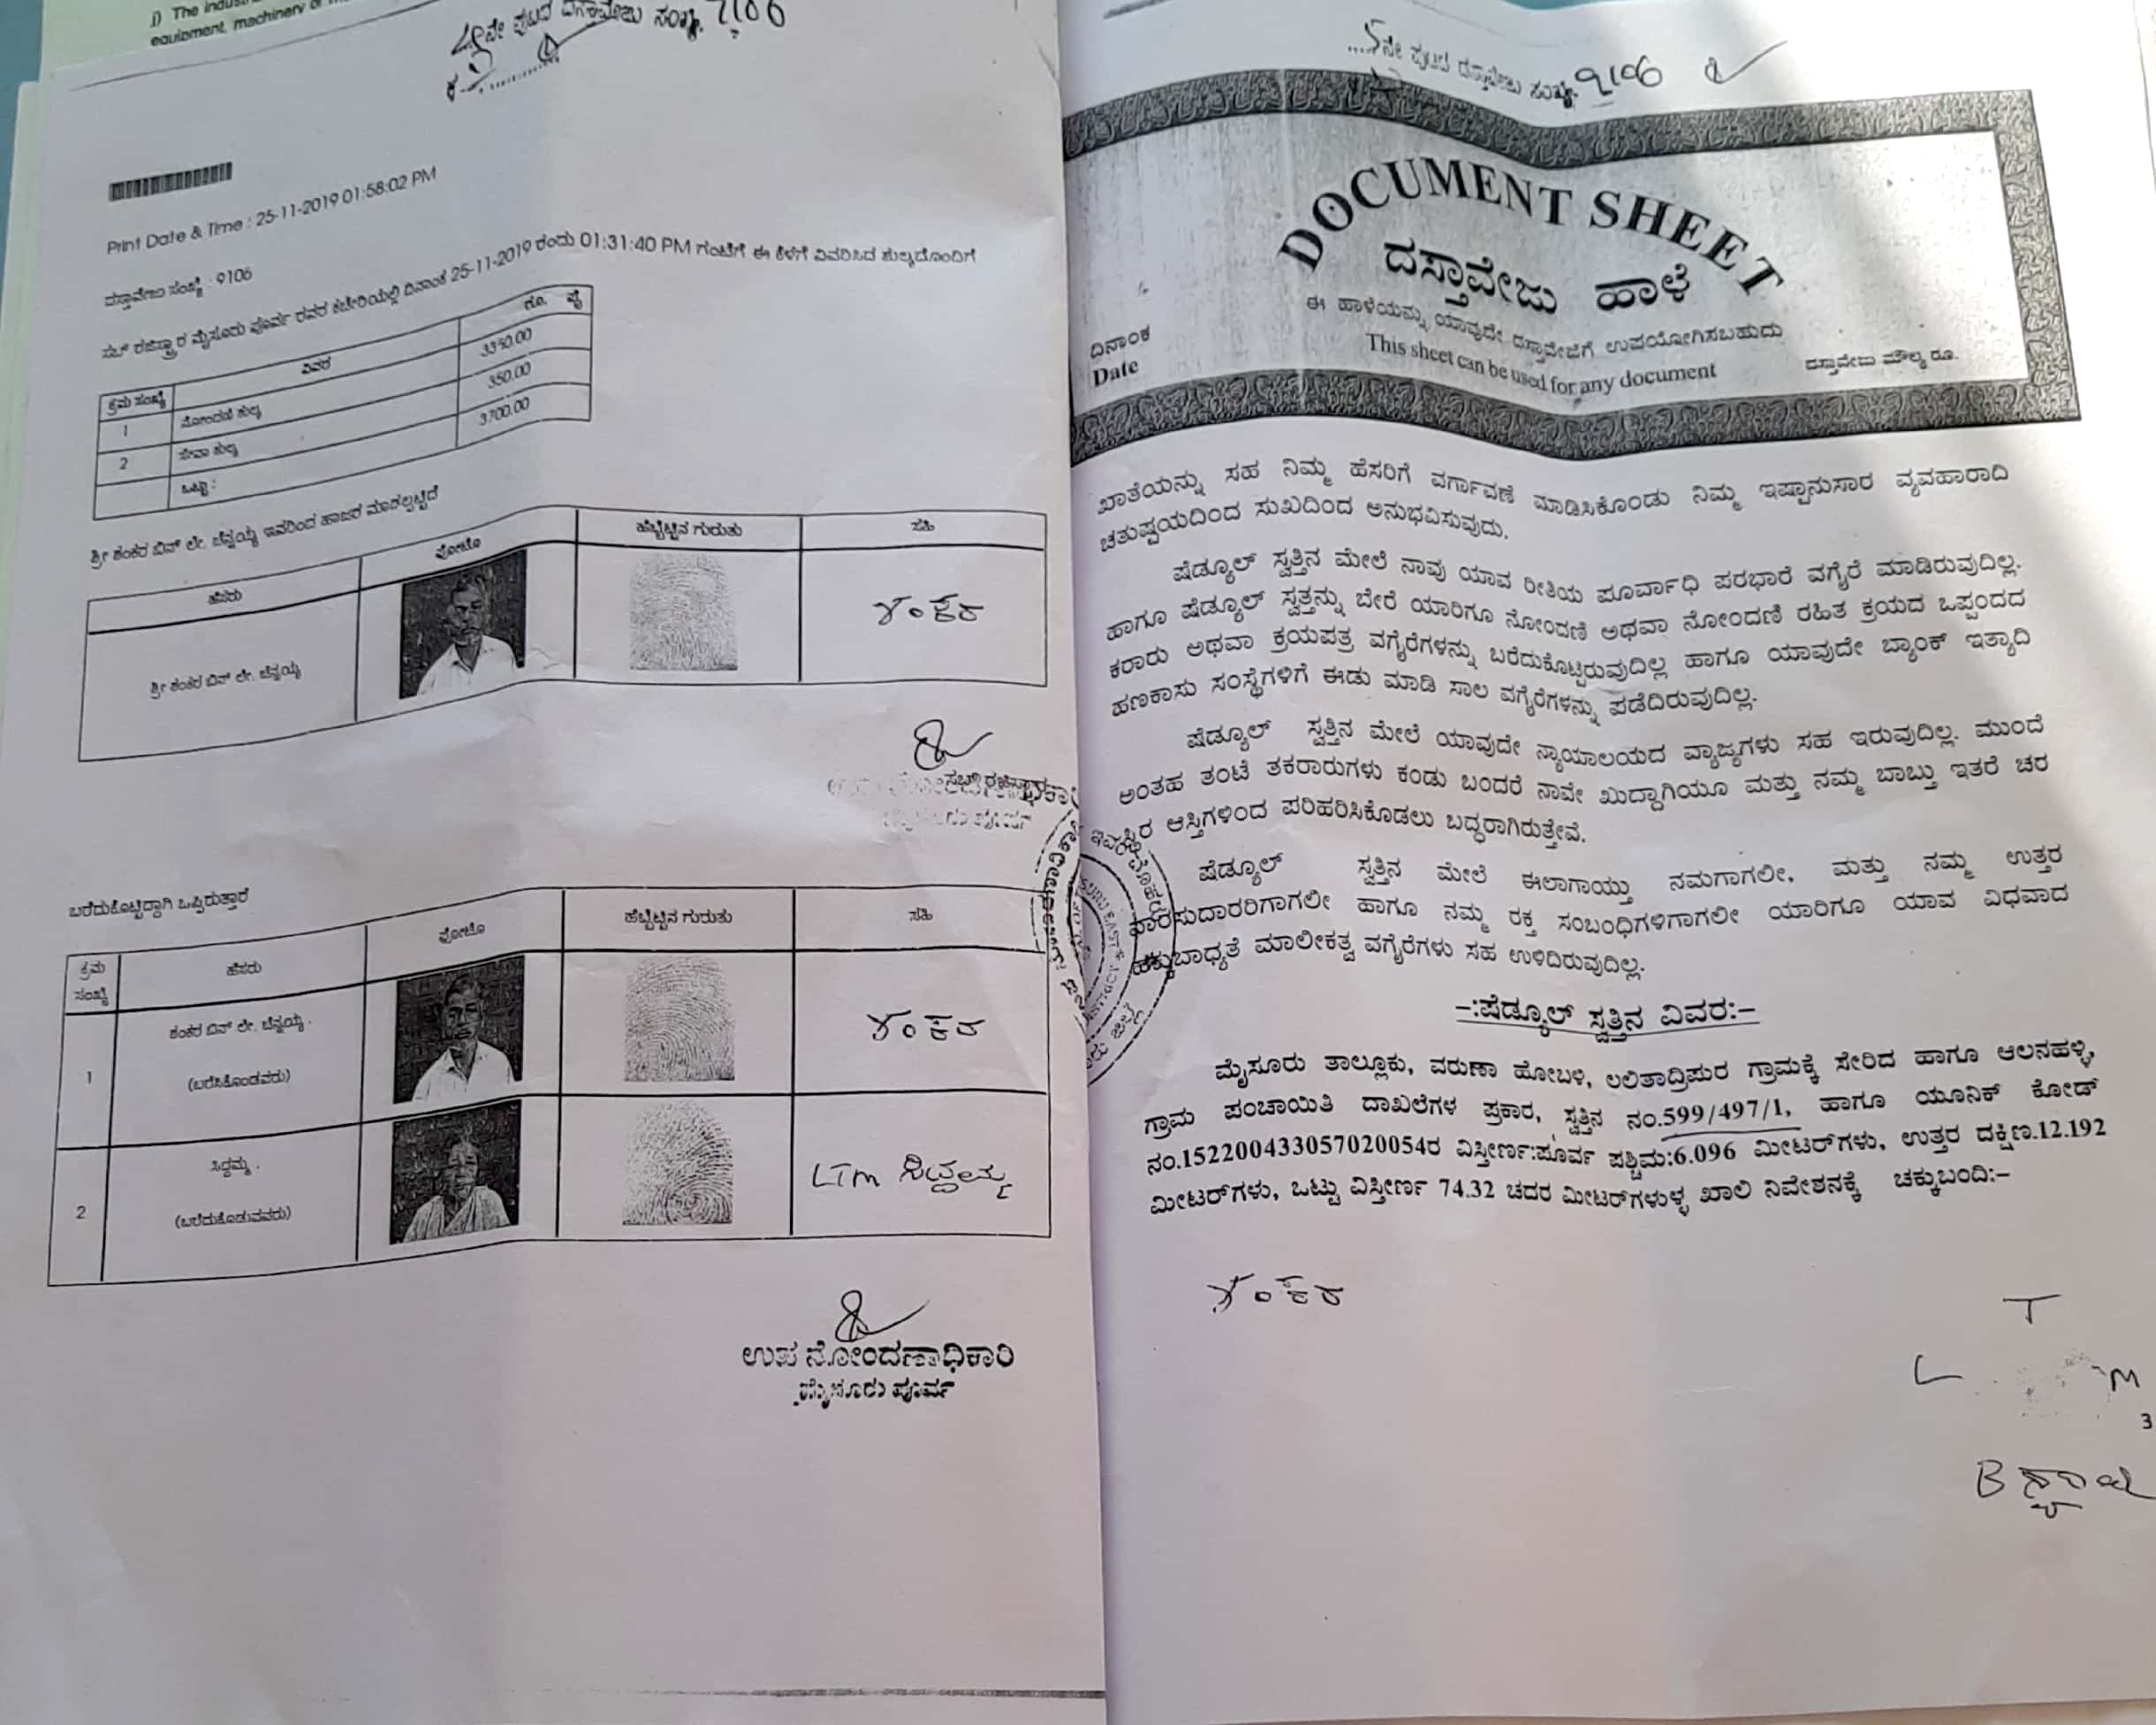 j) The indust
equipment, machinery or
ನೇ ಪುಟದ ದಸ್ತಾವೇಜು ಸಂಖ್ಯೆ. 9106
Print Date & Time : 25-11-2019 01:58:02 PM
ದಸ್ತಾವೇಜು ಸಂಖ್ಯೆ : 9106
ಸಬ್ ರಜಿಸ್ಟ್ರಾರ ಮೈಸೂರು ಪೂರ್ವ ರವರ ಕಚೇರಿಯಲ್ಲಿ ದಿನಾಂಕ 25-11-2019 ರಂದು 01:31:40 PM ಗಂಟೆಗೆ ಈ ಕೆಳಗೆ ವಿವರಿಸಿದ ಶುಲ್ಕದೊಂದಿಗೆ
ಕ್ರಮ ಸಂಖ್ಯೆ ವಿವರ ರೂ. ಪೈ
1 ನೋಂದಣಿ ಶುಲ್ಕ 3350.00
2 ಸೇವಾ ಶುಲ್ಕ 350.00
ಒಟ್ಟು : 3700.00
ಶ್ರೀ ಶಂಕರ ಬಿನ್ ಲೇ. ಚೆನ್ನಯ್ಯ ಇವರಿಂದ ಹಾಜರ ಮಾಡಲ್ಪಟ್ಟಿದೆ
ಹೆಸರು ಫೋಟೊ ಹೆಬ್ಬೆಟ್ಟಿನ ಗುರುತು ಸಹಿ
ಶ್ರೀ ಶಂಕರ ಬಿನ್ ಲೇ. ಚೆನ್ನಯ್ಯ ಶಂಕರ
ಸಬ್ ರಜಿಸ್ಟ್ರಾರ
ಬರೆದುಕೊಟ್ಟಿದ್ದಾಗಿ ಒಪ್ಪಿರುತ್ತಾರೆ
ಕ್ರಮ ಸಂಖ್ಯೆ ಹೆಸರು ಫೋಟೊ ಹೆಬ್ಬೆಟ್ಟಿನ ಗುರುತು ಸಹಿ
1 ಶಂಕರ ಬಿನ್ ಲೇ. ಚೆನ್ನಯ್ಯ . ಶಂಕರ
(ಬರೆಸಿಕೊಂಡವರು)
2 ಸಿದ್ದಮ್ಮ . LTM ಸಿದ್ದಮ್ಮ
(ಬರೆದುಕೊಡುವವರು)
ಉಪ ನೋಂದಣಾಧಿಕಾರಿ
ಮೈಸೂರು ಪೂರ್ವ
...5ನೇ ಪುಟದ ದಸ್ತಾವೇಜು ಸಂಖ್ಯೆ. 9106
DOCUMENT SHEET
ದಸ್ತಾವೇಜು ಹಾಳೆ
ಈ ಹಾಳೆಯಮ್ನು ಯಾವುದೇ ದಸ್ತಾವೇಜಿಗೆ ಉಪಯೋಗಿಸಬಹುದು
This sheet can be used for any document
ದಿನಾಂಕ
Date
ದಸ್ತಾವೇಜು ಮೌಲ್ಯ ರೂ.
ಖಾತೆಯನ್ನು ಸಹ ನಿಮ್ಮ ಹೆಸರಿಗೆ ವರ್ಗಾವಣೆ ಮಾಡಿಸಿಕೊಂಡು ನಿಮ್ಮ ಇಷ್ಟಾನುಸಾರ ವ್ಯವಹಾರಾದಿ
ಚತುಷ್ಟಯದಿಂದ ಸುಖದಿಂದ ಅನುಭವಿಸುವುದು.
ಷೆಡ್ಯೂಲ್ ಸ್ವತ್ತಿನ ಮೇಲೆ ನಾವು ಯಾವ ರೀತಿಯ ಪೂರ್ವಾಧಿ ಪರಭಾರೆ ವಗೈರೆ ಮಾಡಿರುವುದಿಲ್ಲ.
ಹಾಗೂ ಷೆಡ್ಯೂಲ್ ಸ್ವತ್ತನ್ನು ಬೇರೆ ಯಾರಿಗೂ ನೋಂದಣಿ ಅಥವಾ ನೋಂದಣಿ ರಹಿತ ಕ್ರಯದ ಒಪ್ಪಂದದ
ಕರಾರು ಅಥವಾ ಕ್ರಯಪತ್ರ ವಗೈರೆಗಳನ್ನು ಬರೆದುಕೊಟ್ಟಿರುವುದಿಲ್ಲ ಹಾಗೂ ಯಾವುದೇ ಬ್ಯಾಂಕ್ ಇತ್ಯಾದಿ
ಹಣಕಾಸು ಸಂಸ್ಥೆಗಳಿಗೆ ಈಡು ಮಾಡಿ ಸಾಲ ವಗೈರೆಗಳನ್ನು ಪಡೆದಿರುವುದಿಲ್ಲ.
ಷೆಡ್ಯೂಲ್ ಸ್ವತ್ತಿನ ಮೇಲೆ ಯಾವುದೇ ನ್ಯಾಯಾಲಯದ ವ್ಯಾಜ್ಯಗಳು ಸಹ ಇರುವುದಿಲ್ಲ. ಮುಂದೆ
ಅಂತಹ ತಂಟೆ ತಕರಾರುಗಳು ಕಂಡು ಬಂದರೆ ನಾವೇ ಖುದ್ದಾಗಿಯೂ ಮತ್ತು ನಮ್ಮ ಬಾಬ್ತು ಇತರೆ ಚರ
ಸ್ಥಿರ ಆಸ್ತಿಗಳಿಂದ ಪರಿಹರಿಸಿಕೊಡಲು ಬದ್ಧರಾಗಿರುತ್ತೇವೆ.
ಷೆಡ್ಯೂಲ್ ಸ್ವತ್ತಿನ ಮೇಲೆ ಈಲಾಗಾಯ್ತು ನಮಗಾಗಲೀ, ಮತ್ತು ನಮ್ಮ ಉತ್ತರ
ವಾರಸುದಾರರಿಗಾಗಲೀ ಹಾಗೂ ನಮ್ಮ ರಕ್ತ ಸಂಬಂಧಿಗಳಿಗಾಗಲೀ ಯಾರಿಗೂ ಯಾವ ವಿಧವಾದ
ಹಕ್ಕುಬಾಧ್ಯತೆ ಮಾಲೀಕತ್ವ ವಗೈರೆಗಳು ಸಹ ಉಳಿದಿರುವುದಿಲ್ಲ.
-:ಷೆಡ್ಯೂಲ್ ಸ್ವತ್ತಿನ ವಿವರ:-
ಮೈಸೂರು ತಾಲ್ಲೂಕು, ವರುಣಾ ಹೋಬಳಿ, ಲಲಿತಾದ್ರಿಪುರ ಗ್ರಾಮಕ್ಕೆ ಸೇರಿದ ಹಾಗೂ ಆಲನಹಳ್ಳಿ,
ಗ್ರಾಮ ಪಂಚಾಯಿತಿ ದಾಖಲೆಗಳ ಪ್ರಕಾರ, ಸ್ವತ್ತಿನ ನಂ.599/497/1, ಹಾಗೂ ಯೂನಿಕ್ ಕೋಡ್
ನಂ.152200433057020054ರ ವಿಸ್ತೀರ್ಣ:ಪೂರ್ವ ಪಶ್ಚಿಮ:6.096 ಮೀಟರ್‌ಗಳು, ಉತ್ತರ ದಕ್ಷಿಣ.12.192
ಮೀಟರ್‌ಗಳು, ಒಟ್ಟು ವಿಸ್ತೀರ್ಣ 74.32 ಚದರ ಮೀಟರ್‌ಗಳುಳ್ಳ ಖಾಲಿ ನಿವೇಶನಕ್ಕೆ ಚಕ್ಕುಬಂದಿ:-
ಶಂಕರ
L T M
3
B